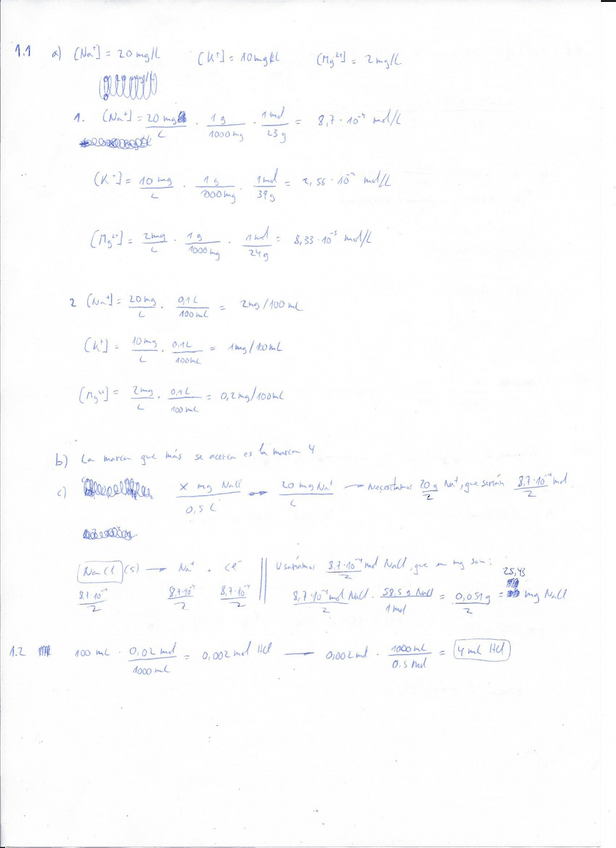 1.1 a) [Na⁺] = 20 mg/L [K⁺] = 10 mg/L [Mg²⁺] = 2 mg/L
1. [Na⁺] = 20 mg/L · 1 g/1000 mg · 1 mol/23 g = 8,7 · 10⁻⁴ mol/L
[K⁺] = 10 mg/L · 1 g/1000 mg · 1 mol/39 g = 2,56 · 10⁻⁴ mol/L
[Mg²⁺] = 2 mg/L · 1 g/1000 mg · 1 mol/24 g = 8,33 · 10⁻⁵ mol/L
2 [Na⁺] = 20 mg/L · 0,1 L/100 mL = 2 mg/100 mL
[K⁺] = 10 mg/L · 0,1 L/100 mL = 1 mg/100 mL
[Mg²⁺] = 2 mg/L · 0,1 L/100 mL = 0,2 mg/100 mL
b) La marca que más se acerca es la marca 4
c) X mg NaCl/0,5 L → 20 mg Na⁺/L → Necesitamos 20 g/2 Na⁺, que serían 8,7 · 10⁻⁴/2 mol
NaCl (s) → Na⁺ + Cl⁻ || Usaríamos 8,7 · 10⁻⁴/2 mol NaCl, que en mg son:
8,7 · 10⁻⁴/2 8,7 · 10⁻⁴/2 8,7 · 10⁻⁴/2 || 8,7 · 10⁻⁴ mol NaCl/2 · 58,5 g NaCl/1 mol = 0,051 g/2 = 25,43 mg NaCl
1.2 100 mL · 0,02 mol/1000 mL = 0,002 mol HCl → 0,002 mol · 1000 mL/0,5 mol = 4 mL HCl